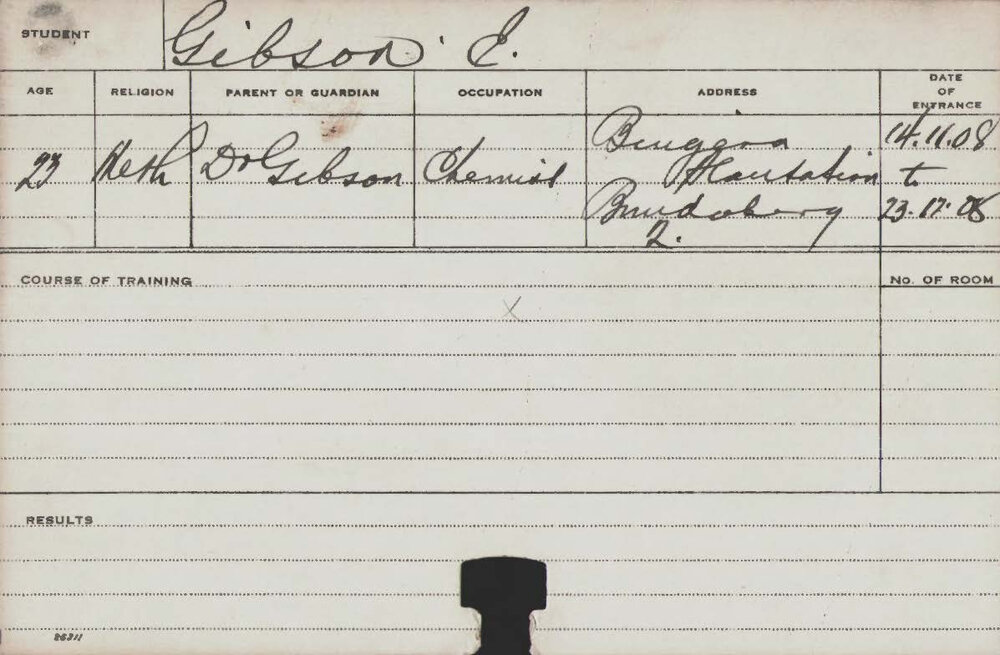 STUDENT Gibson E.
AGE RELIGION PARENT OR GUARDIAN OCCUPATION ADDRESS DATE OF ENTRANCE
23 Meth Dr Gibson Chemist Bingera 14.11.08
Plantation to
Bundaberg 23.12.08
2.
COURSE OF TRAINING No. OF ROOM
X
RESULTS
26311